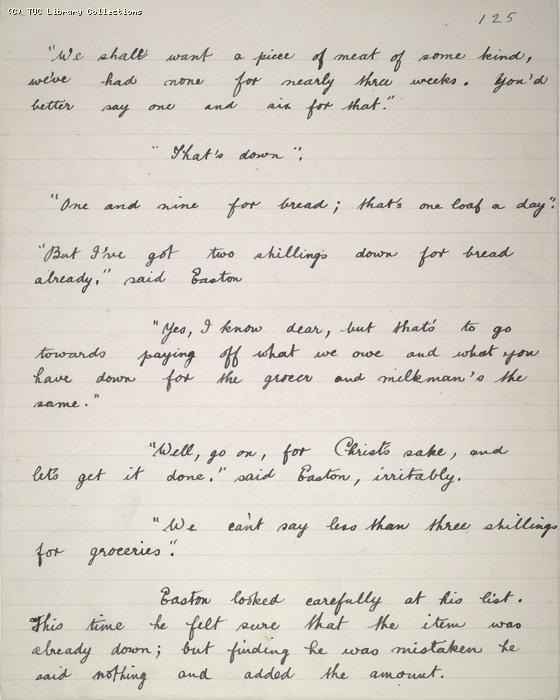 (C) TUC Library Collections
125
"We shall want a piece of meat of some kind,
we've had none for nearly three weeks. You'd
better say one and six for that."
"That's down".
"One and nine for bread; that's one loaf a day".
"But I've got two shillings down for bread
already." said Easton
"Yes, I know dear, but that's to go
towards paying off what we owe and what you
have down for the grocer and milkman's the
same."
"Well, go on, for Christ's sake, and
let's get it done." said Easton, irritably.
"We can't say less than three shillings
for groceries".
Easton looked carefully at his list.
This time he felt sure that the item was
already down; but finding he was mistaken he
said nothing and added the amount.